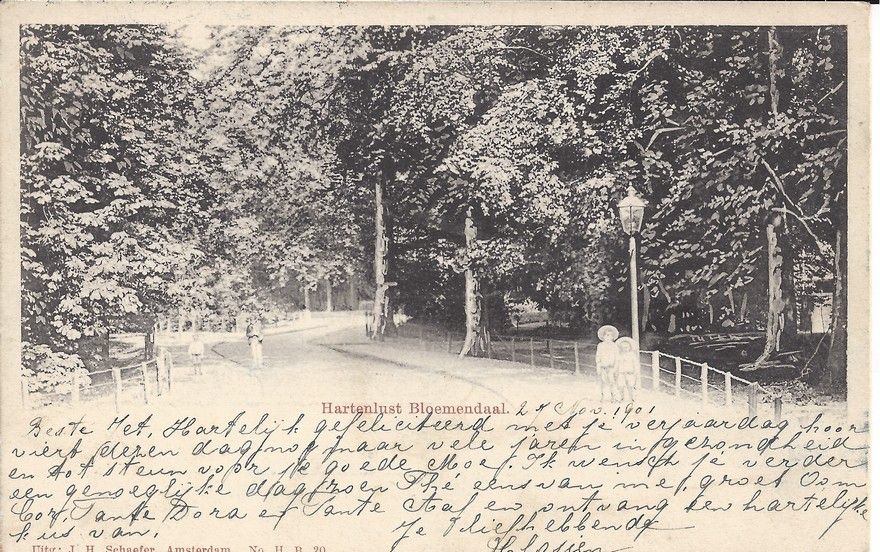 Hartenlust Bloemendaal. 27 Nov. 1901
Beste Jet, Hartelijk gefeliciteerd met je verjaardag hoor
viert dezen dag nog maar vele jaren in gezondheid
en tot steun voor je goede Moe. Ik wensch je verder
een genoeglijke dag zoen Thé eens van me, groet Oom
Cor, Tante Dora en Tante en ontvang een hartelijke
kus van. Je liefhebbende
Uitg: J. H. Schaefer, Amsterdam. No. H. B. 20